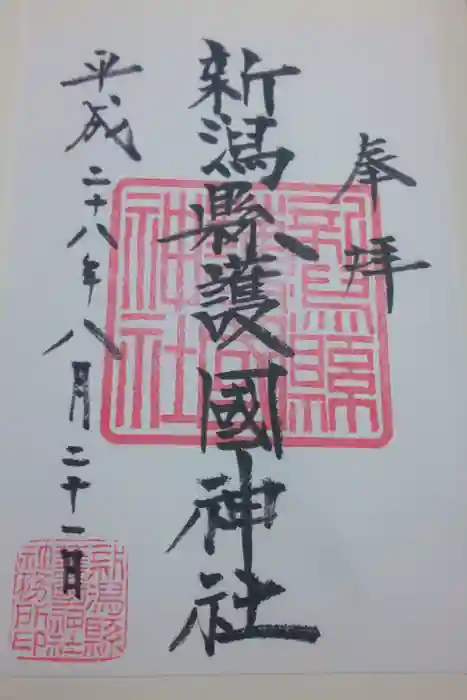 奉拝
新潟縣護國神社
平成二十八年八月二十一日
新潟縣護國神社
新潟縣護國神社社務所印